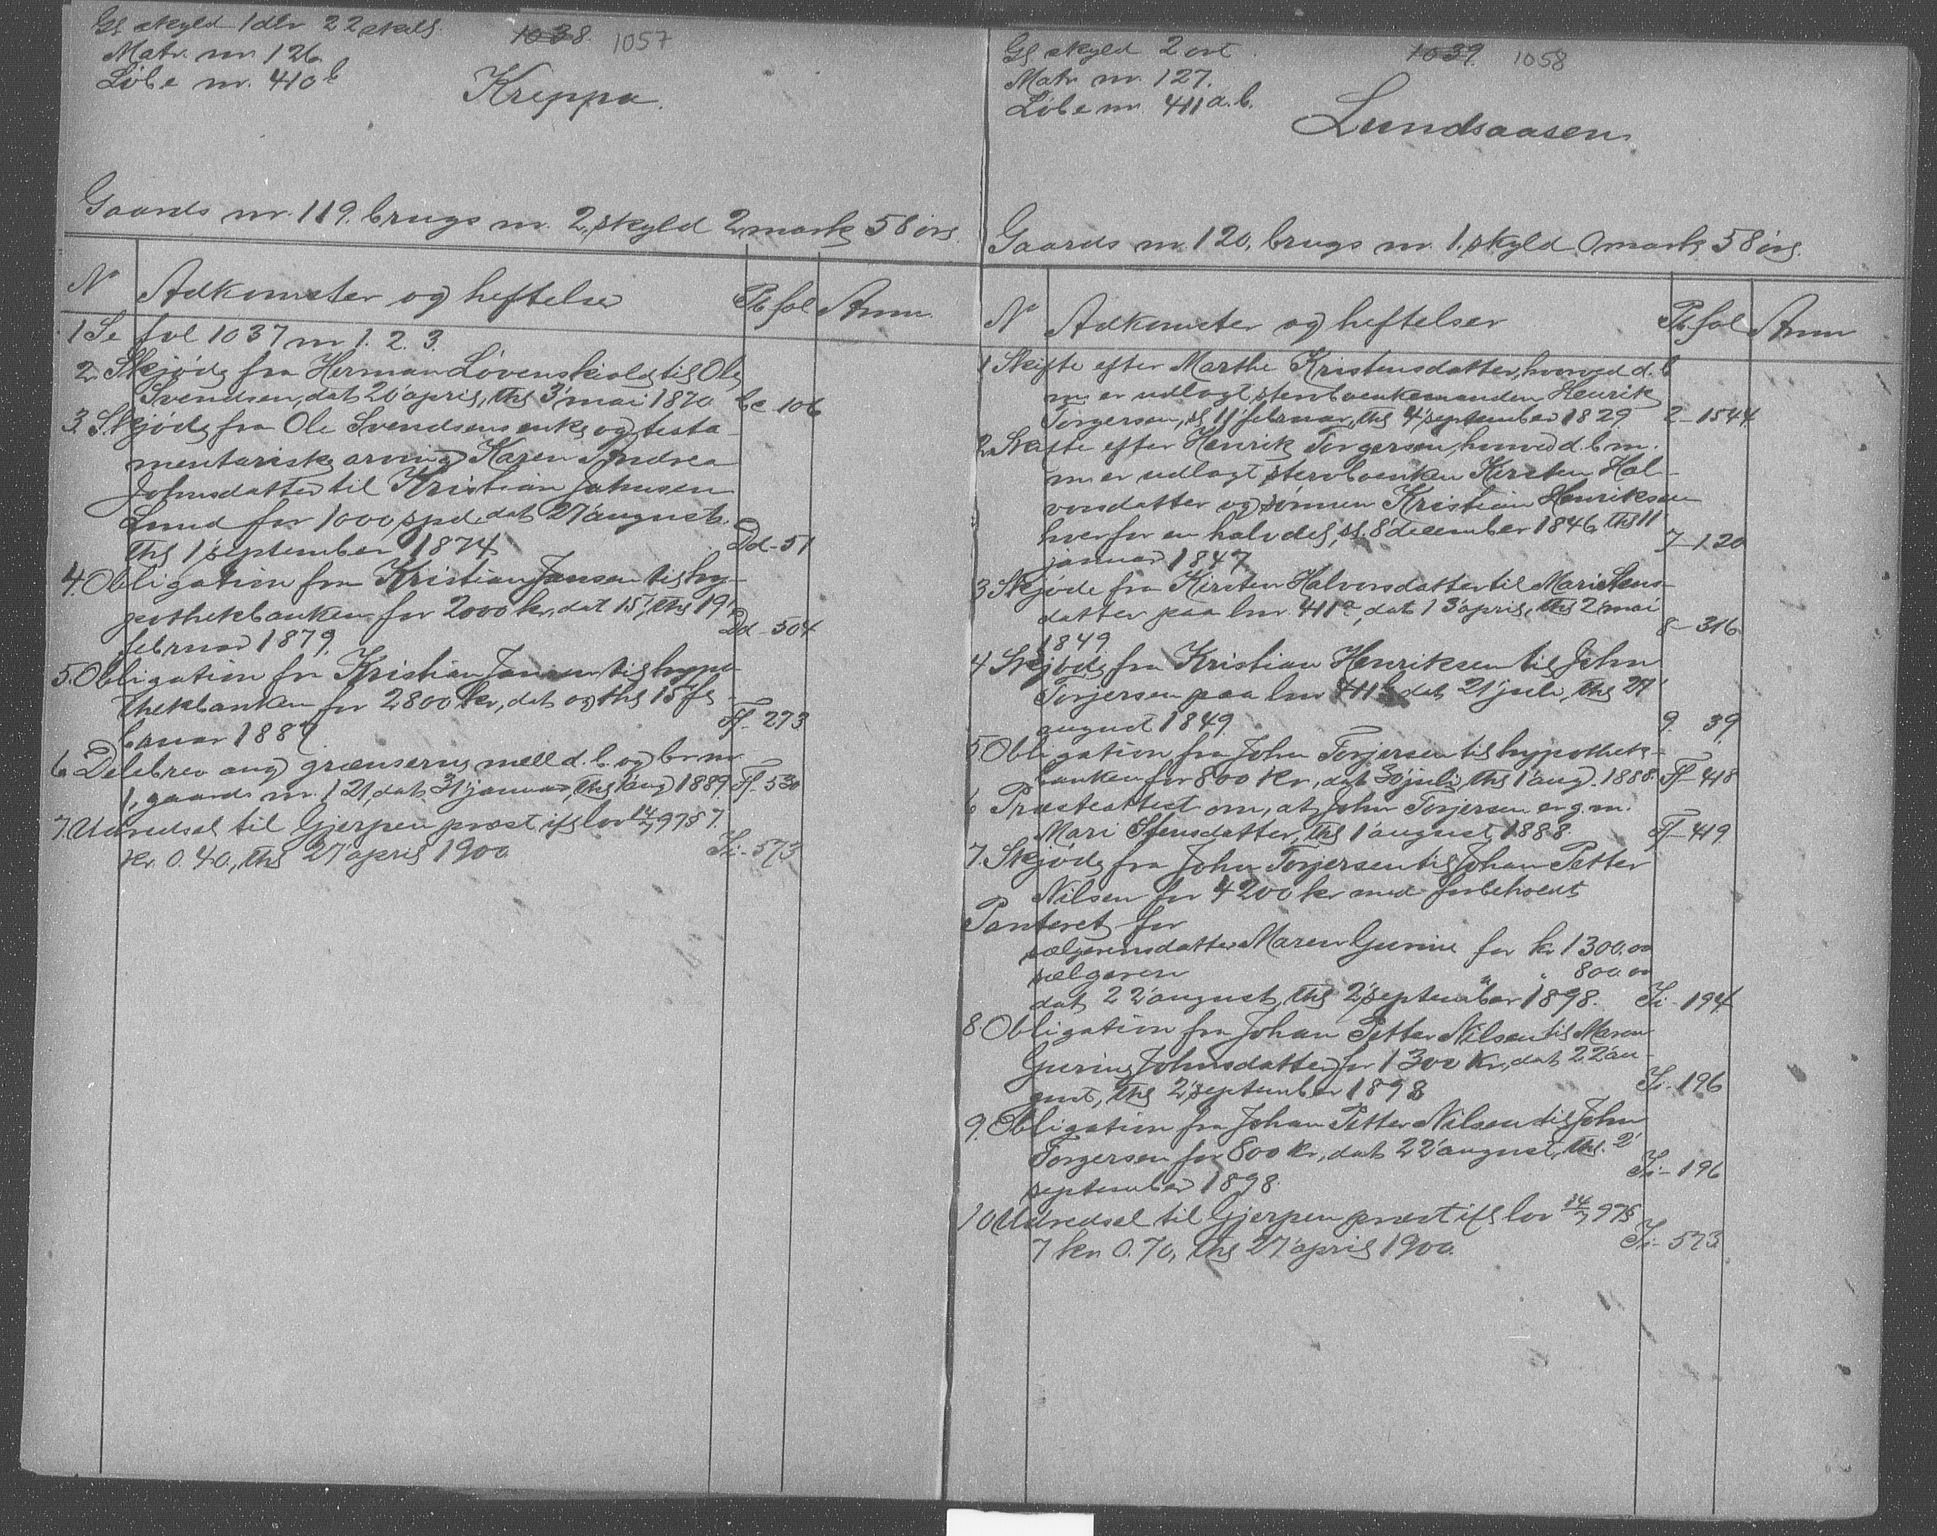 Gl skyld 1 dlr 22 skilg.
1038. 1057
Matr. nr. 126.
Löbe nr. 410b
Kreppa.
Gaards nr. 119. brugs nr. 2, skyld 2 mark 58 örs.
N Adkomster og heftelser Pb fol Anm.
1 Se fol 1037 nr 1. 2. 3.
2. Skjöde fra Herman Lövenskiold til Ole
Svendsen, dat 20' april, thgl 3' mai 1870 bc 106
3. Skjöde fra Ole Svendsens enke og testa-
mentariske arving Karen Andrea
Johnsdatter til Kristian Johnsen
Lund for 1000 spd. dat 27' august.
thgl 1' september 1874 Dd- 51
4. Obligation fra Kristian Jansen til hy-
pothekbanken for 2000 kr, dat 15', thgl 19'
februar 1879. Dd- 504
5. Obligation fra Kristian Jansen til hypo-
thekbanken for 2800 kr, dat og thgl 15' fe-
bruar 1887. Ff- 273
6. Delebrev ang grænserne mell d. b. og br nr
1, gaards nr. 121, dat 31' januar, thgl 1' aug 1889 Ff- 530
7. Udredsel til Gjerpen prest ifl lov 14/7 975 7.
kr. 0.40., thgl 27' april 1900 Ii- 573
Gl skyld 2 ort
1039. 1058
Matr nr. 127.
Löbe nr. 411 a. b.
Lundsaasen.
Gaards nr. 120, brugs nr. 1. skyld 0 mark 58 örs.
N Adkomster og heftelser Pb. fol Anm
1 Skifte efter Marthe Kristensdatter, hvorved d. b
nr er udlagt sterboenkemanden Henrik
Torgersen, sl. 11' februar, thgl 4' september 1829 2- 1544
2. Skifte efter Henrik Torgersen, hvorved d. b nr.
nr er udlagt sterboenken Kirsten Hal-
vorsdatter og sönnen Kristian Henriksen
hver for en halvdel, sl. 8' december 1846 thgl 11
januar 1847 7- 120
3 Skjöde fra Kirsten Halvorsdatter til Mari Stens-
datter paa lnr 411a, dat 13' april, thgl 2' mai
1849 8- 316
4 Skjöde fra Kristian Henriksen til John
Torjersen paa lnr 411b dat 21' juli, thgl 27'
august 1849. 9. 39
5. Obligation fra John Torjersen til hypothek-
banken for 800 kr, dat 30' juli, thgl 1' aug. 1888. Ff- 418
6 Præsteattest om, at John Torjersen er g. m.
Mari Stensdatter, thgl 1' august 1888. Ff- 419
7. Skjöde fra John Torjersen til Johan Petter
Nilsen for 4200 kr med forbeholdt
Panteret for
sælgerens datter Maren Gurine for kr 1300.00
sælgeren " " 800.00
dat 22' august, thgl 2' september 1898. Ii- 194
8. Obligation fra Johan Petter Nilsen til Maren
Gurine Johnsdatter for 1300 kr, dat 22' au-
gust, thgl 2' september 1898 Ii- 196
9. Obligation fra Johan Petter Nilsen til John
Torgersen for 800 kr, dat 22' august, thgl. 2'
september 1898. Ii- 196
10 Udredsel til Gjerpen prest ifl lov 14/7 975
7 kr 0.70, thgl 27' april 1900. Ii- 573